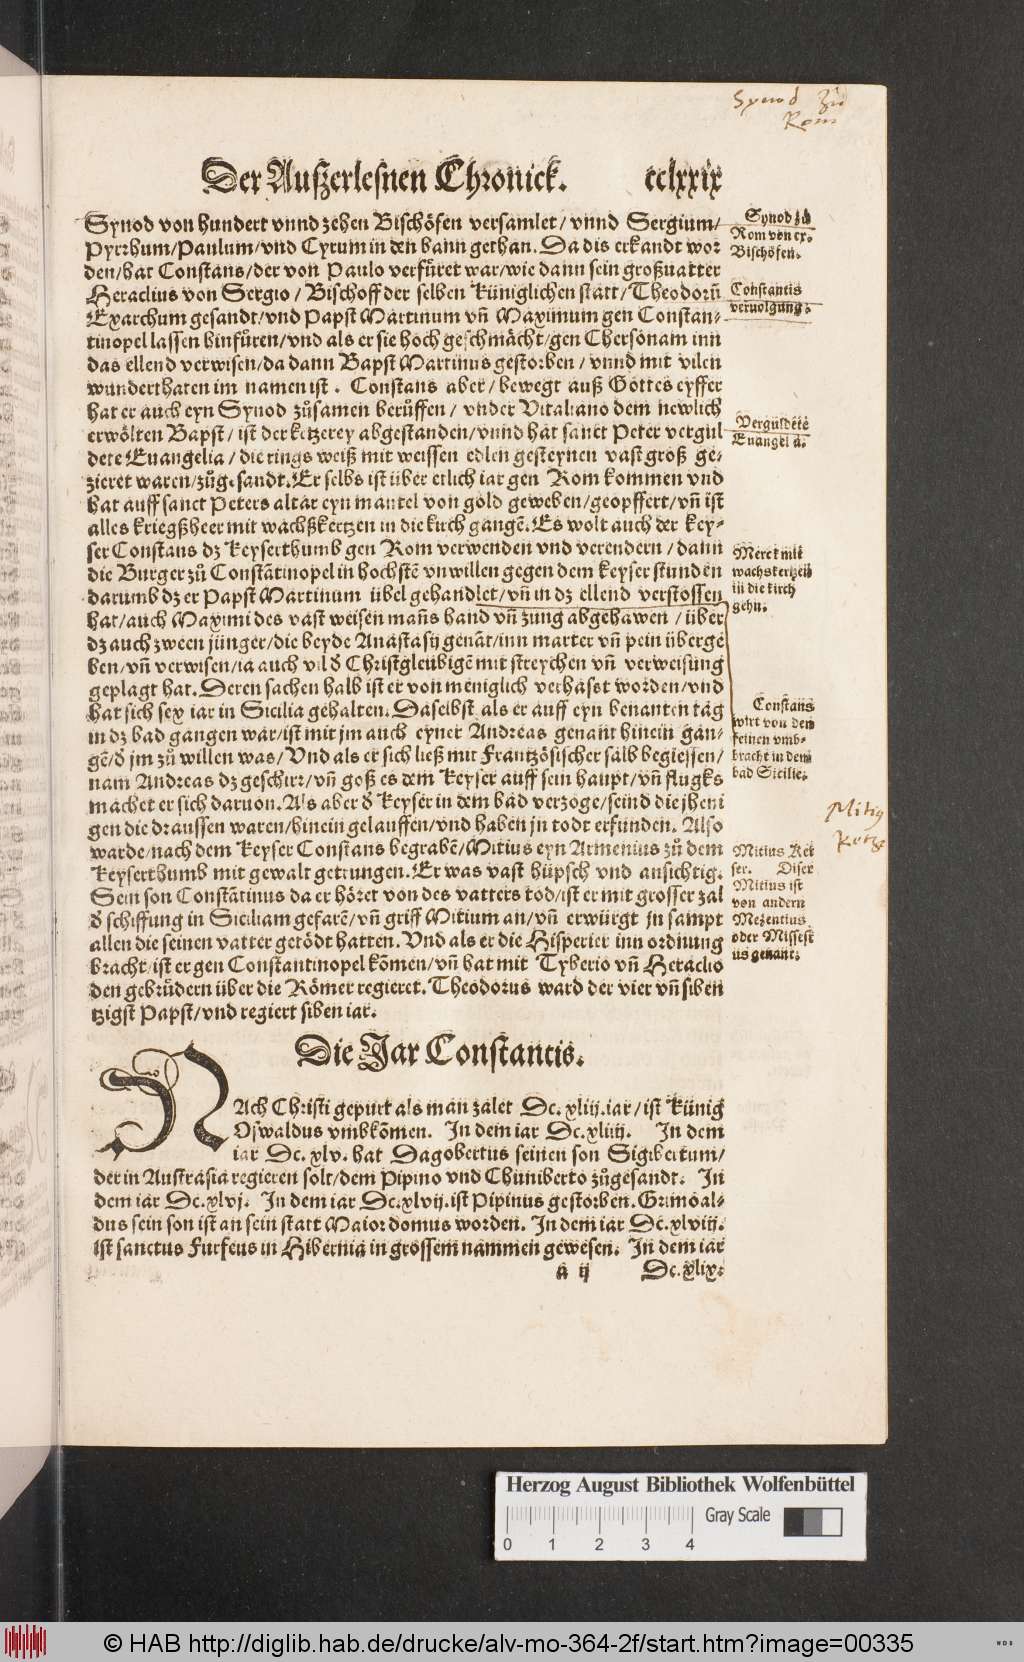 Synod zů
Rom
Der Außerlesnen Chronick. cclxxix
Synod von hundert vnnd zehen Bischöfen versamlet/ vnnd Sergium/
Pyrrhum/Paulum/vnd Cyrum in den bann gethan. Da dis erkandt wor
den/hat Constans/der von Paulo verfůret war/wie dann sein großuatter
Heraclius von Sergio/ Bischoff der selben Küniglichen statt/Theodorū
Exarchum gesandt/vnd Papst Martinum vñ Maximum gen Constan-
tinopel lassen hinfůren/vnd als er sie hoch geschmächt/gen Chersonam inn
das ellend verwisen/da dann Bapst Martinus gestorben/ vnnd mit vilen
wunderthaten im namen ist. Constans aber/bewegt auß Gottes eyffer
hat er auch eyn Synod zůsamen berůffen/ vnder Vitaliano dem newlich
erwölten Bapst/ ist der ketzerey abgestanden/vnnd hat sanct Peter vergul
dete Euangelia/die rings weiß mit weissen edlen gesteynen vast groß ge-
zieret waren/zůgesandt. Er selbs ist über etlich iar gen Rom kommen vnd
hat auff sanct Peters altar eyn mantel von gold geweben/geopffert/vñ ist
alles kriegßheer mit wachßkertzen in die kirch gangē. Es wolt auch der key-
ser Constans dz Keyserthumb gen Rom verwenden vnd verendern/dann
die Burger zů Constātinopel in hochstē vnwillen gegen dem keyser stunden
darumb dz er Papst Martinum übel gehandlet/vñ in dz ellend verstossen
hat/auch Maximi des vast weisen mañs hand vñ zung abgehawen/über
dz auch zween jünger/die beyde Anastasij genāt/inn marter vñ pein überge
ben/vñ verwisen/ia auch vil d Christgleubigē mit streychen vñ verweisung
geplagt hat. Deren sachen halb ist er von meniglich verhasst worden/vnd
hat sich sex iar in Sicilia gehalten. Daselbst als er auff eyn benanten tag
in dz bad gangen war/ist mit jm auch eyner Andreas genant hinein gan-
gē/d jm zů willen was/ Vnd als er sich ließ mit Frantzösischer salb begiessen/
nam Andreas dz geschirr/vñ goß es dem Keyser auff sein haupt/vñ flugks
machet er sich daruon. Als aber d Keyser in dem bad verzoge/seind die jheni
gen die draussen waren/hinein gelauffen/vnd haben jn todt erfunden. Also
warde/nach dem Keyser Constans begrabē/Mitius eyn Armenius zů dem
Keyserthumb mit gewalt getrungen. Er was vast hüpsch vnd ansichtig.
Sein son Constātinus da er höret von des vatters tod/ist er mit grosser zal
d schiffung in Siciliam gefarē/vñ griff Mitium an/vñ erwürgt jn sampt
allen die seinen vatter getödt hatten. Vnd als er die Hisperier inn ordnung
bracht/ist er gen Constantinopel kōmen/vñ hat mit Tyberio vñ Heraclio
den gebrůdern über die Römer regieret. Theodorus ward der vier vñ siben
tzigst Papst/vnd regiert siben iar.
Synod zů
Rom von cx.
Bischöfen.
Constantis
veruolgung.
Vergüldetē
Euangelia.
Merck mit
wachskertzen
in die kirch
gehn.
Constans
wirt von dem
seinen vmb-
bracht in dem
bad Sicilie.
Mitig
Mitius Kei
ser. Diser
Mitius ist
von andern
Mezentius
oder Missest
us genant.
Die Jar Constantis.
NAch Christi gepurt als man zalet Dc.xliij.iar/ist Künig
Oswaldus vmbkōmen. In dem iar Dc.xliiij. In dem
iar Dc.xlv. hat Dagobertus seinen son Sigibertum/
der in Austrasia regieren solt/dem Pipino vnd Chuniberto zůgesandt. In
dem iar Dc.xlvj. In dem iar Dc.xlvij.ist Pipinus gestorben. Grimoal-
dus sein son ist an sein statt Maior domus worden. In dem iar Dc.xlviij.
ist sanctus Furseus in Hibernia in grossem nammen gewesen. In dem iar
a ij Dc.xlix.
Herzog August Bibliothek Wolfenbüttel
Gray Scale
0 1 2 3 4
© HAB http://diglib.hab.de/drucke/alv-mo-364-2f/start.htm?image=00335
HAB